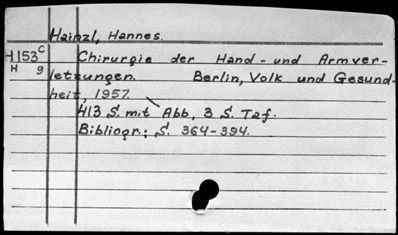 Hainzl, Hannes.
H153 C Chirurgie der Hand- und Armver-
H 9 letzungen. Berlin, Volk und Gesund-
heit, 1957.
413 S. mit Abb, 3 S. Taf.
Bibliogr.; S. 364-394.